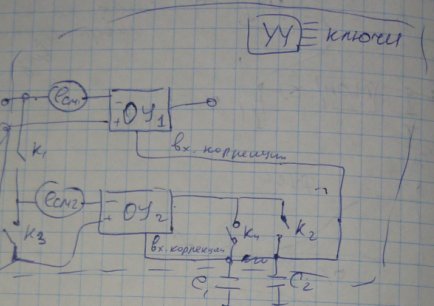 УУ ключи
eсм1 - + ОУ1
вх. коррекции
K1
eсм2 - + ОУ2
K3 K4 K2
вх. коррекции
C1 C2